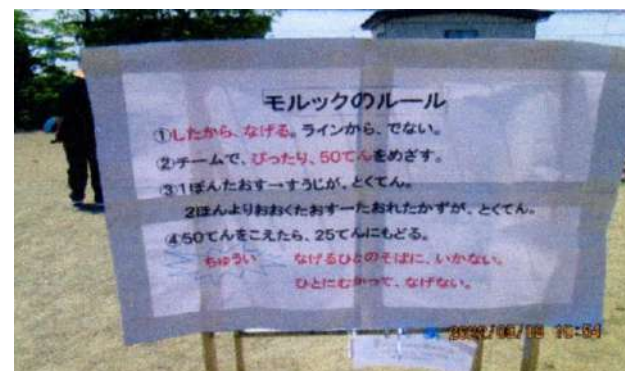 モルックのルール
①したから、なげる。ラインから、でない。
②チームで、ぴったり、50てんをめざす。
③1ぽんたおすーすうじが、とくてん。
2ほんよりおおくたおすーたおれたかずが、とくてん。
④50てんをこえたら、25てんにもどる。
ちゅうい なげるひとのそばに、いかない。
ひとにむかって、なげない。